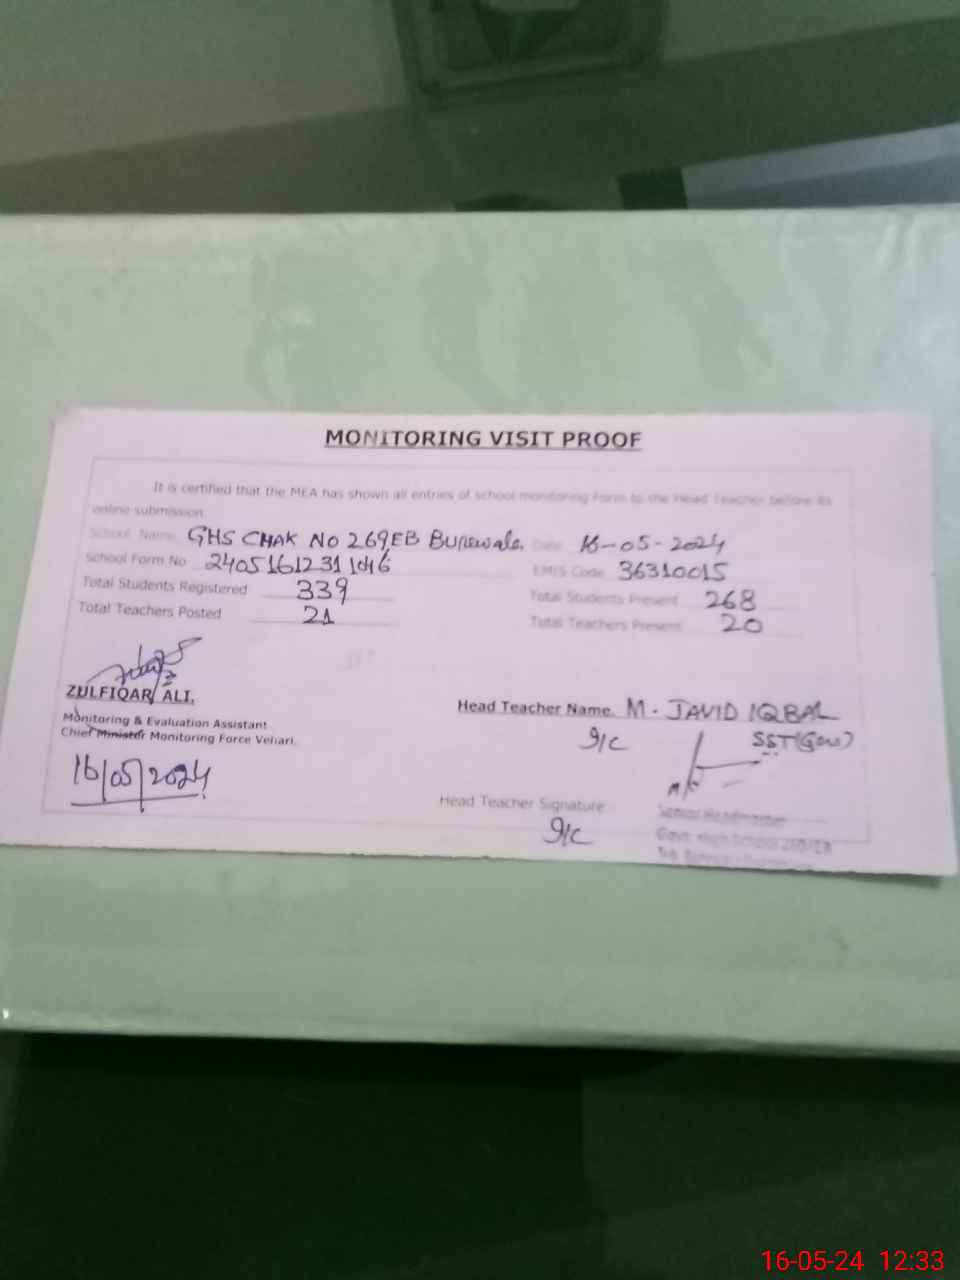 MONITORING VISIT PROOF
It is certified that the MEA has shown all entries of school monitoring Form to the Head Teacher before its
online submission.
School Name GHS CHAK NO 269EB Burewala. Date 16-05-2024
School Form No 2405161231146 EMIS Code 36310015
Total Students Registered 339 Total Students Present 268
Total Teachers Posted 21 Total Teachers Present 20
ZULFIQAR ALI.
Monitoring & Evaluation Assistant
Chief Minister Monitoring Force Vehari.
16/05/2024
Head Teacher Name. M. JAVID IQBAL
I/C SST(Gen)
Head Teacher Signature
I/C
Senior Headmaster
Govt. High School
16-05-24 12:33